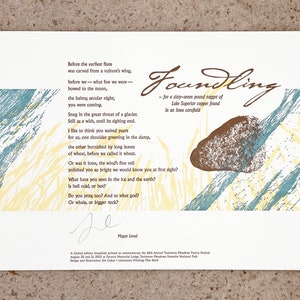 Foundling
– for a sixty-seven pound nugget of
Lake Superior copper found
in an Iowa cornfield
Before the earliest flute
was carved from a vulture's wing,
before we – what few we were –
bowed to the moon,
the balmy, secular night,
you were coming.
Snug in the great throat of a glacier.
Still as a wish, until its sighing end.
I like to think you waited years
for us, one shoulder greening in the damp,
the other burnished by long leaves
of wheat, before we called it wheat.
Or was it lions, the wind's fine veil
polished you so bright we would know you at first sight?
What have you seen in the ice and the earth?
Is hell cold, or hot?
Do you pray too? And to what god?
Or whale, or bigger rock?
Megan Levad